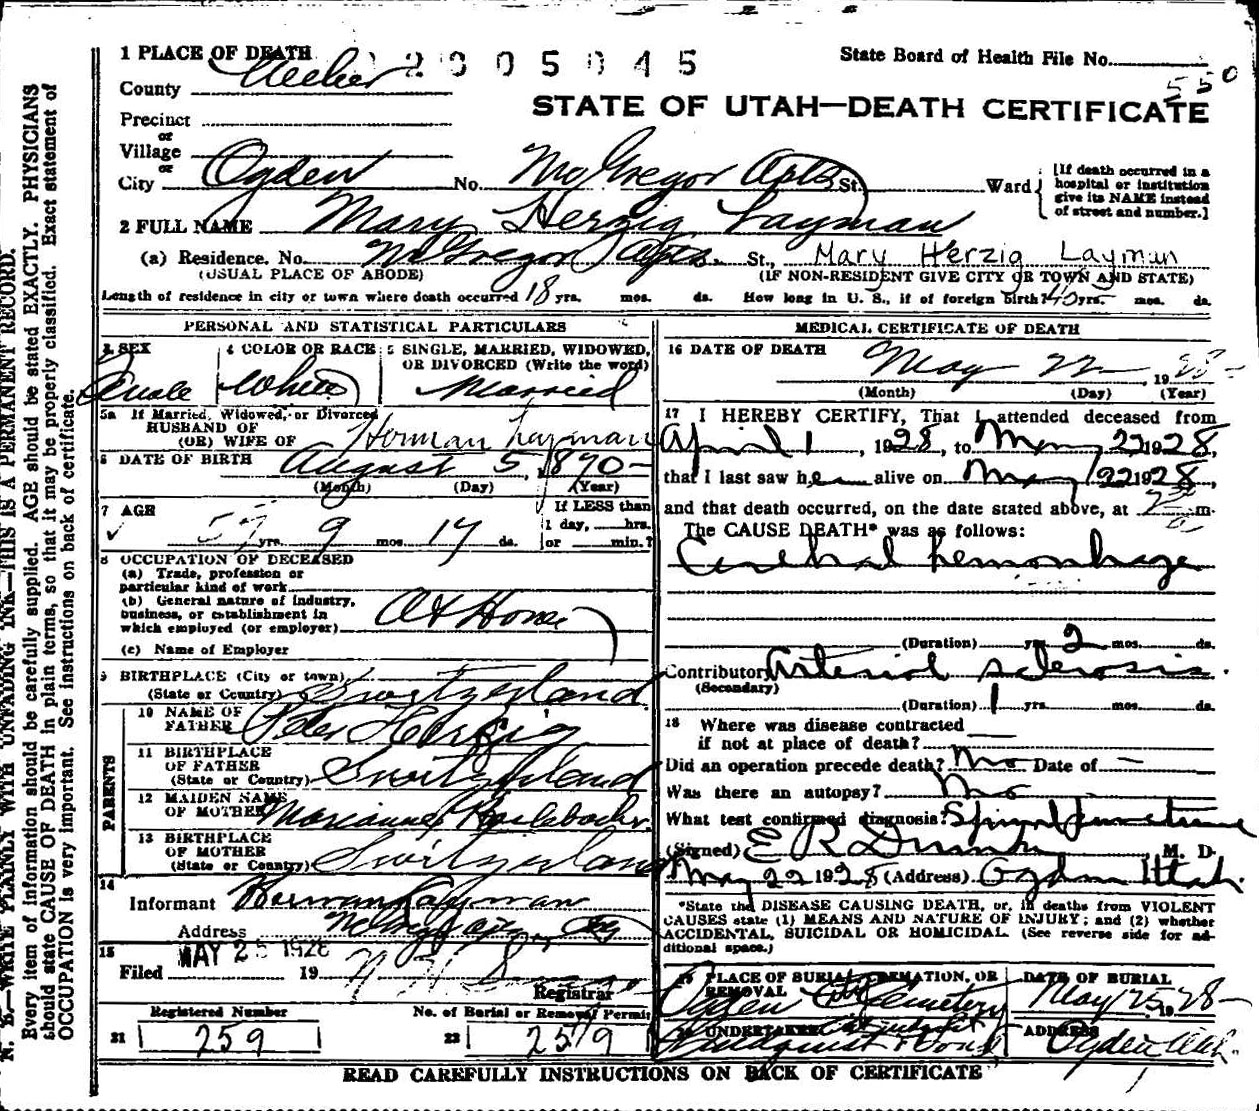 1 PLACE OF DEATH
2005045
State Board of Health File No.
550
County Weber
STATE OF UTAH—DEATH CERTIFICATE
Precinct
or
Village
or
City Ogden No. McGregor Apts St. Ward
[If death occurred in a hospital or institution give its NAME instead of street and number.]
2 FULL NAME Mary Herzig Layman
(a) Residence. No. McGregor Apts. St., Mary Herzig Layman
(USUAL PLACE OF ABODE) (IF NON-RESIDENT GIVE CITY OR TOWN AND STATE)
Length of residence in city or town where death occurred 18 yrs. mos. ds. How long in U. S., if of foreign birth? yrs. mos. ds.
PERSONAL AND STATISTICAL PARTICULARS
3 SEX 4 COLOR OR RACE 5 SINGLE, MARRIED, WIDOWED,
OR DIVORCED (Write the word)
Female White Married
5a If Married, Widowed, or Divorced
HUSBAND OF
(OR) WIFE OF Herman Layman
6 DATE OF BIRTH August 5, 1870
(Month) (Day) (Year)
7 AGE 57 yrs. 9 mos. 17 ds.
If LESS than
1 day, hrs.
or min.?
8 OCCUPATION OF DECEASED
(a) Trade, profession or
particular kind of work
(b) General nature of industry,
business, or establishment in
which employed (or employer) At Home
(c) Name of Employer
9 BIRTHPLACE (City or town)
(State or Country) Switzerland
PARENTS
10 NAME OF
FATHER Peter Herzig
11 BIRTHPLACE
OF FATHER
(State or Country) Switzerland
12 MAIDEN NAME
OF MOTHER Marianne
13 BIRTHPLACE
OF MOTHER
(State or Country) Switzerland
14
Informant Herman Layman
Address McGregor Apts
15 MAY 25 1928
Filed 19
Registrar
Registered Number No. of Burial or Removal Permit
21 259 22 2519
MEDICAL CERTIFICATE OF DEATH
16 DATE OF DEATH May 22 1928
(Month) (Day) (Year)
17 I HEREBY CERTIFY, That I attended deceased from
April 1, 1928, to May 22 1928,
that I last saw her alive on May 22 1928,
and that death occurred, on the date stated above, at m.
The CAUSE DEATH* was as follows:
Cerebral hemorrhage
(Duration) yrs. 2 mos. ds.
Contributory Arterial sclerosis.
(Secondary)
(Duration) 1 yrs. mos. ds.
18 Where was disease contracted
if not at place of death?
Did an operation precede death? No Date of —
Was there an autopsy? No
What test confirmed diagnosis? Spinal puncture
(Signed) E R M. D.
May 22 1928 (Address) Ogden Utah.
*State the DISEASE CAUSING DEATH, or, in deaths from VIOLENT
CAUSES state (1) MEANS AND NATURE OF INJURY; and (2) whether
ACCIDENTAL, SUICIDAL OR HOMICIDAL. (See reverse side for ad-
ditional space.)
19 PLACE OF BURIAL, CREMATION, OR REMOVAL DATE OF BURIAL
Ogden City Cemetery May 25, 1928
20 UNDERTAKER ADDRESS
Lindquist & Sons Ogden, Utah.
READ CAREFULLY INSTRUCTIONS ON BACK OF CERTIFICATE
N. B.—WRITE PLAINLY WITH UNFADING INK—THIS IS A PERMANENT RECORD.
Every item of information should be carefully supplied. AGE should be stated EXACTLY. PHYSICIANS
should state CAUSE OF DEATH in plain terms, so that it may be properly classified. Exact statement of
OCCUPATION is very important. See instructions on back of certificate.